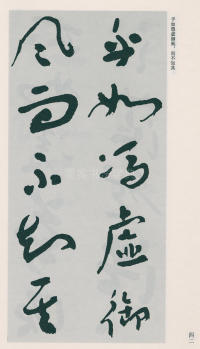 乎如馮虛御風，而不知其
乎如馮虛御
風而不知其
四二